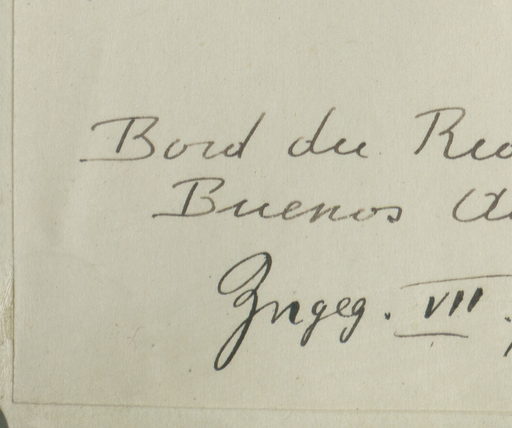 Bord du Rio
Buenos A
Zngeg. VII.